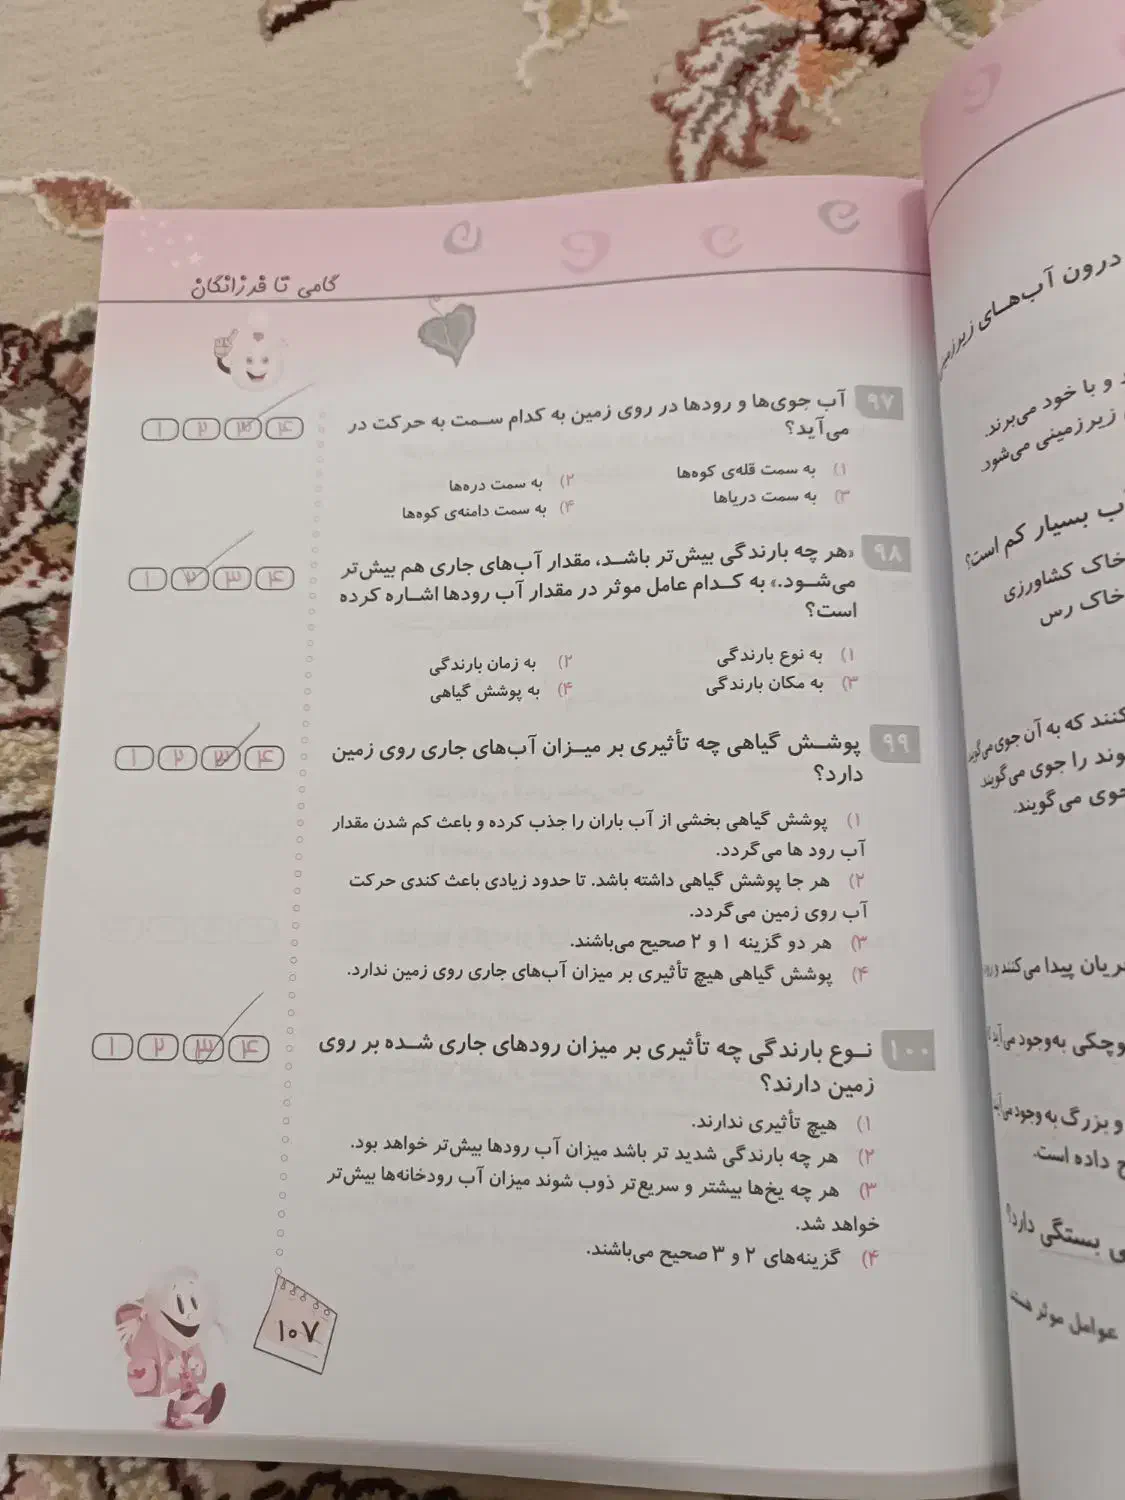 گامی تا فرزانگان
۹۷ آب جوی‌ها و رودها در روی زمین به کدام سمت به حرکت در
می‌آید؟
۱) به سمت قله‌ی کوه‌ها
۲) به سمت دره‌ها
۳) به سمت دریاها
۴) به سمت دامنه‌ی کوه‌ها
۱ ۲ ۳ ۴
۹۸ «هر چه بارندگی بیش‌تر باشد، مقدار آب‌های جاری هم بیش‌تر
می‌شود.» به کدام عامل موثر در مقدار آب رودها اشاره کرده
است؟
۱) به نوع بارندگی
۲) به زمان بارندگی
۳) به مکان بارندگی
۴) به پوشش گیاهی
۱ ۲ ۳ ۴
۹۹ پوشش گیاهی چه تأثیری بر میزان آب‌های جاری روی زمین
دارد؟
۱) پوشش گیاهی بخشی از آب باران را جذب کرده و باعث کم شدن مقدار
آب رود ها می‌گردد.
۲) هر جا پوشش گیاهی داشته باشد. تا حدود زیادی باعث کندی حرکت
آب روی زمین می‌گردد.
۳) هر دو گزینه ۱ و ۲ صحیح می‌باشند.
۴) پوشش گیاهی هیچ تأثیری بر میزان آب‌های جاری روی زمین ندارد.
۱ ۲ ۳ ۴
۱۰۰ نوع بارندگی چه تأثیری بر میزان رودهای جاری شده بر روی
زمین دارند؟
۱) هیچ تأثیری ندارند.
۲) هر چه بارندگی شدید تر باشد میزان آب رودها بیش‌تر خواهد بود.
۳) هر چه یخ‌ها بیشتر و سریع‌تر ذوب شوند میزان آب رودخانه‌ها بیش‌تر
خواهد شد.
۴) گزینه‌های ۲ و ۳ صحیح می‌باشند.
۱ ۲ ۳ ۴
۱۰۷
درون آب‌های زیرزمینی
و با خود می‌برند.
زیرزمینی می‌شود.
بسیار کم است؟
خاک کشاورزی
خاک رس
کنند که به آن جوی می‌گویند
وند را جوی می‌گویند.
جوی می‌گویند.
ریان پیدا می‌کنند و
وچکی به‌وجود می‌آید
و بزرگ به وجود می‌آیند
داده است.
بستگی دارد؟
عوامل موثر هستند